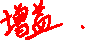 增益.